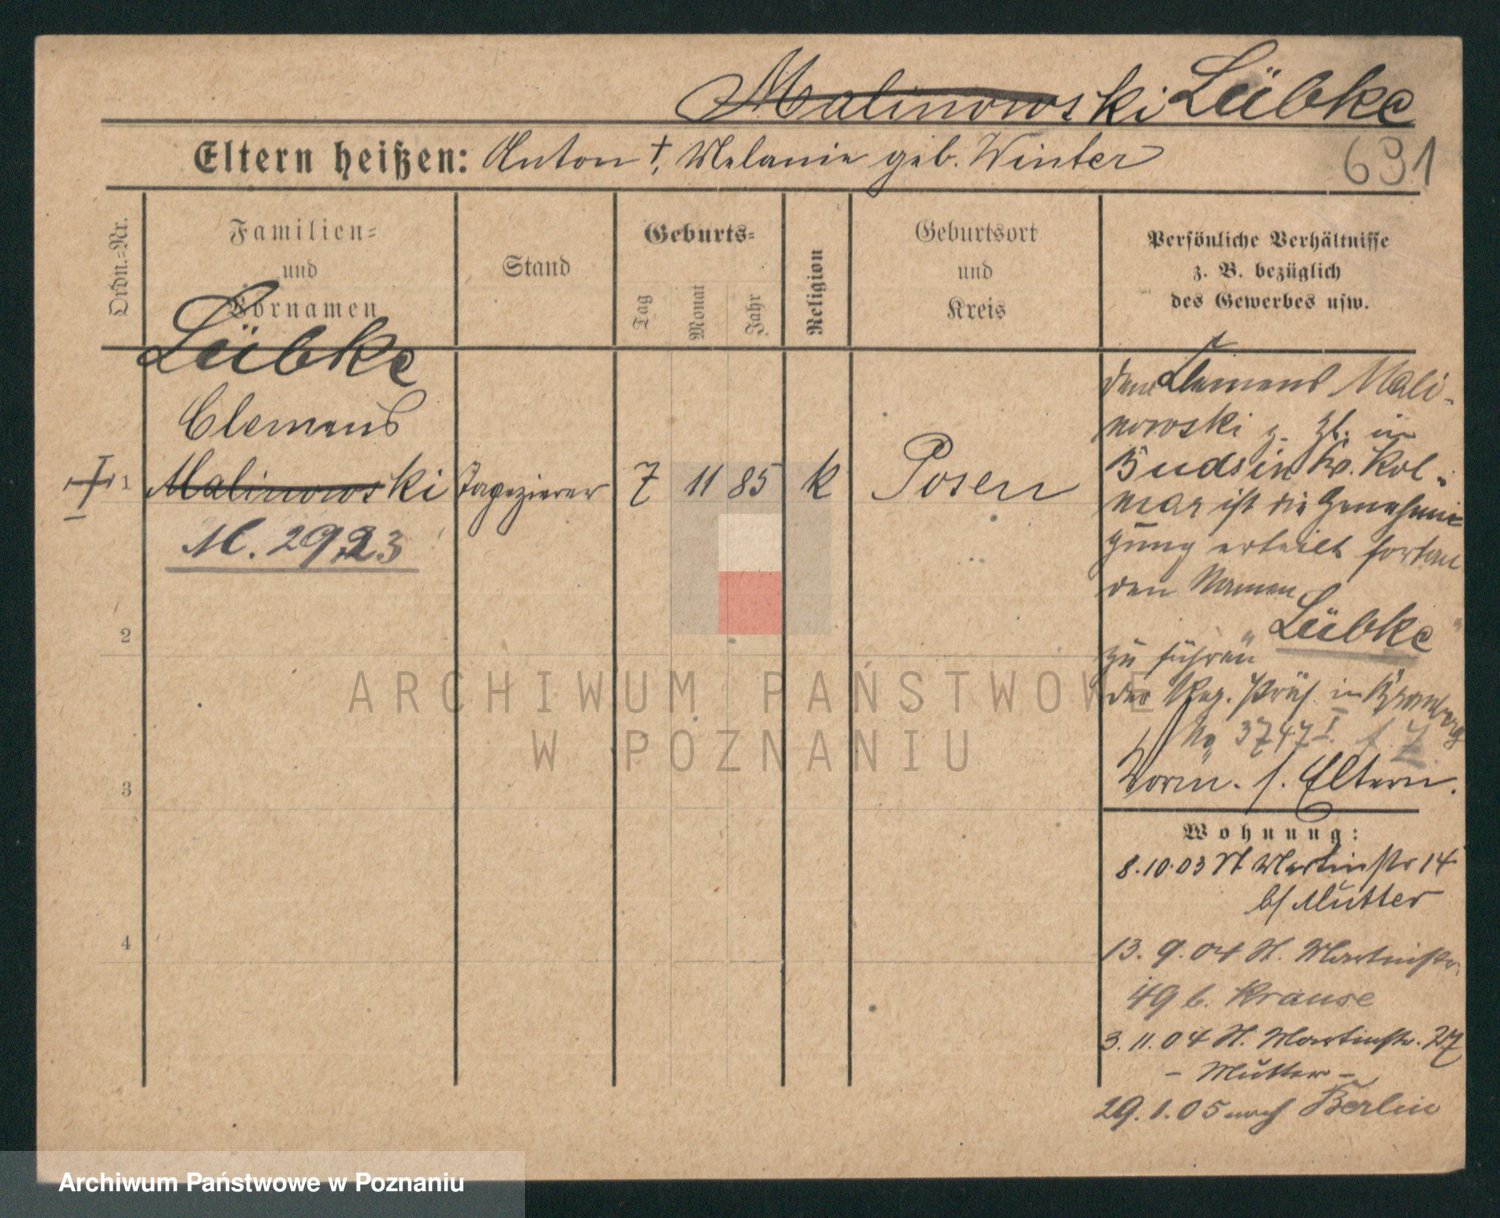 Malinowski Lübke
Eltern heißen: Anton †, Melanie geb. Winter
691
Ordn.-Nr.
Familien-
und
Vornamen
Stand
Geburts-
Tag
Monat
Jahr
Religion
Geburtsort
und
Kreis
Persönliche Verhältnisse
z. B. bezüglich
des Gewerbes usw.
Lübke
Clemens
1 Malinowski Tapezierer 7 11 85 k Posen
M. 29.
2
3
4
dem Clemens Mali-
nowski z. Zt. in
Budsin Kr. Kol-
mar ist die Genehmi-
gung erteilt fortan
den Namen
"Lübke"
zu führen
der Reg. Präs. in Bromberg
No 3747 I.
Vorm. s. Eltern.
Wohnung:
8.10.03 St Martinstr 14
b/ Mutter
13. 9. 04 St. Martinstr.
49 b. Krause
3. 11. 04 St. Martinstr. 27
- Mutter -
29. 1. 05 nach Berlin
ARCHIWUM PAŃSTWOWE
W POZNANIU
Archiwum Państwowe w Poznaniu